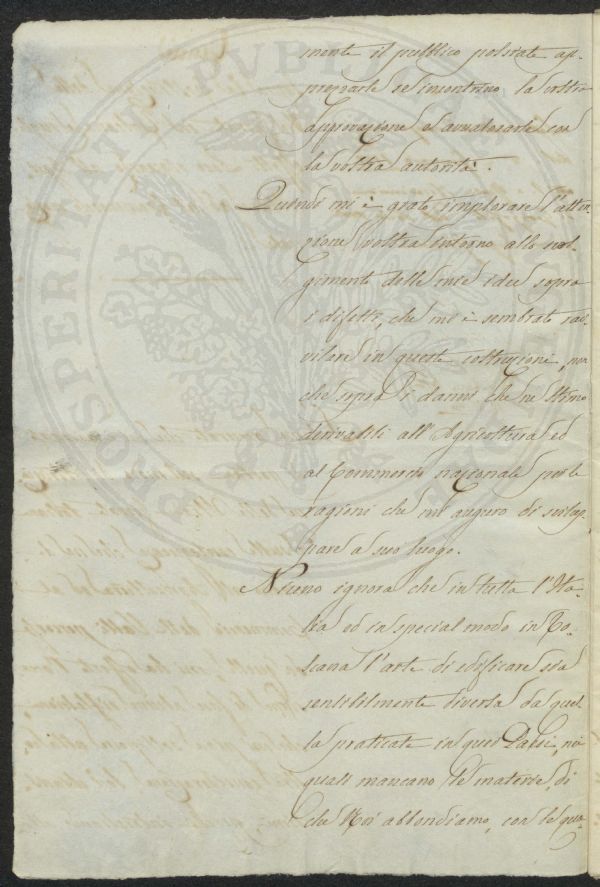 mente il pubblico potrate ap-
prezzarle se incontrino la vostra
approvazione ed avvalorarle con
la vostra autorità.
Quindi mi è grato implorare l'atten-
zione vostra intorno allo svol-
gimento delle mie idee sopra
i difetti, che mi è sembrato rav-
visare in queste costruzioni, non
che sopra i danni che ne stimo
derivabili all'Agricoltura ed
al Commercio nazionale per le
ragioni che mi auguro di svilup-
pare a suo luogo.
Niuno ignora che in tutta l'Ita-
lia ed in special modo in To-
scana l'arte di edificare sia
sensibilmente diversa da quel-
la praticata in quei Paesi, nei
quali mancano le materie, di
che Noi abbondiamo, con le qua-
PROSPERITATI PUBLICAE